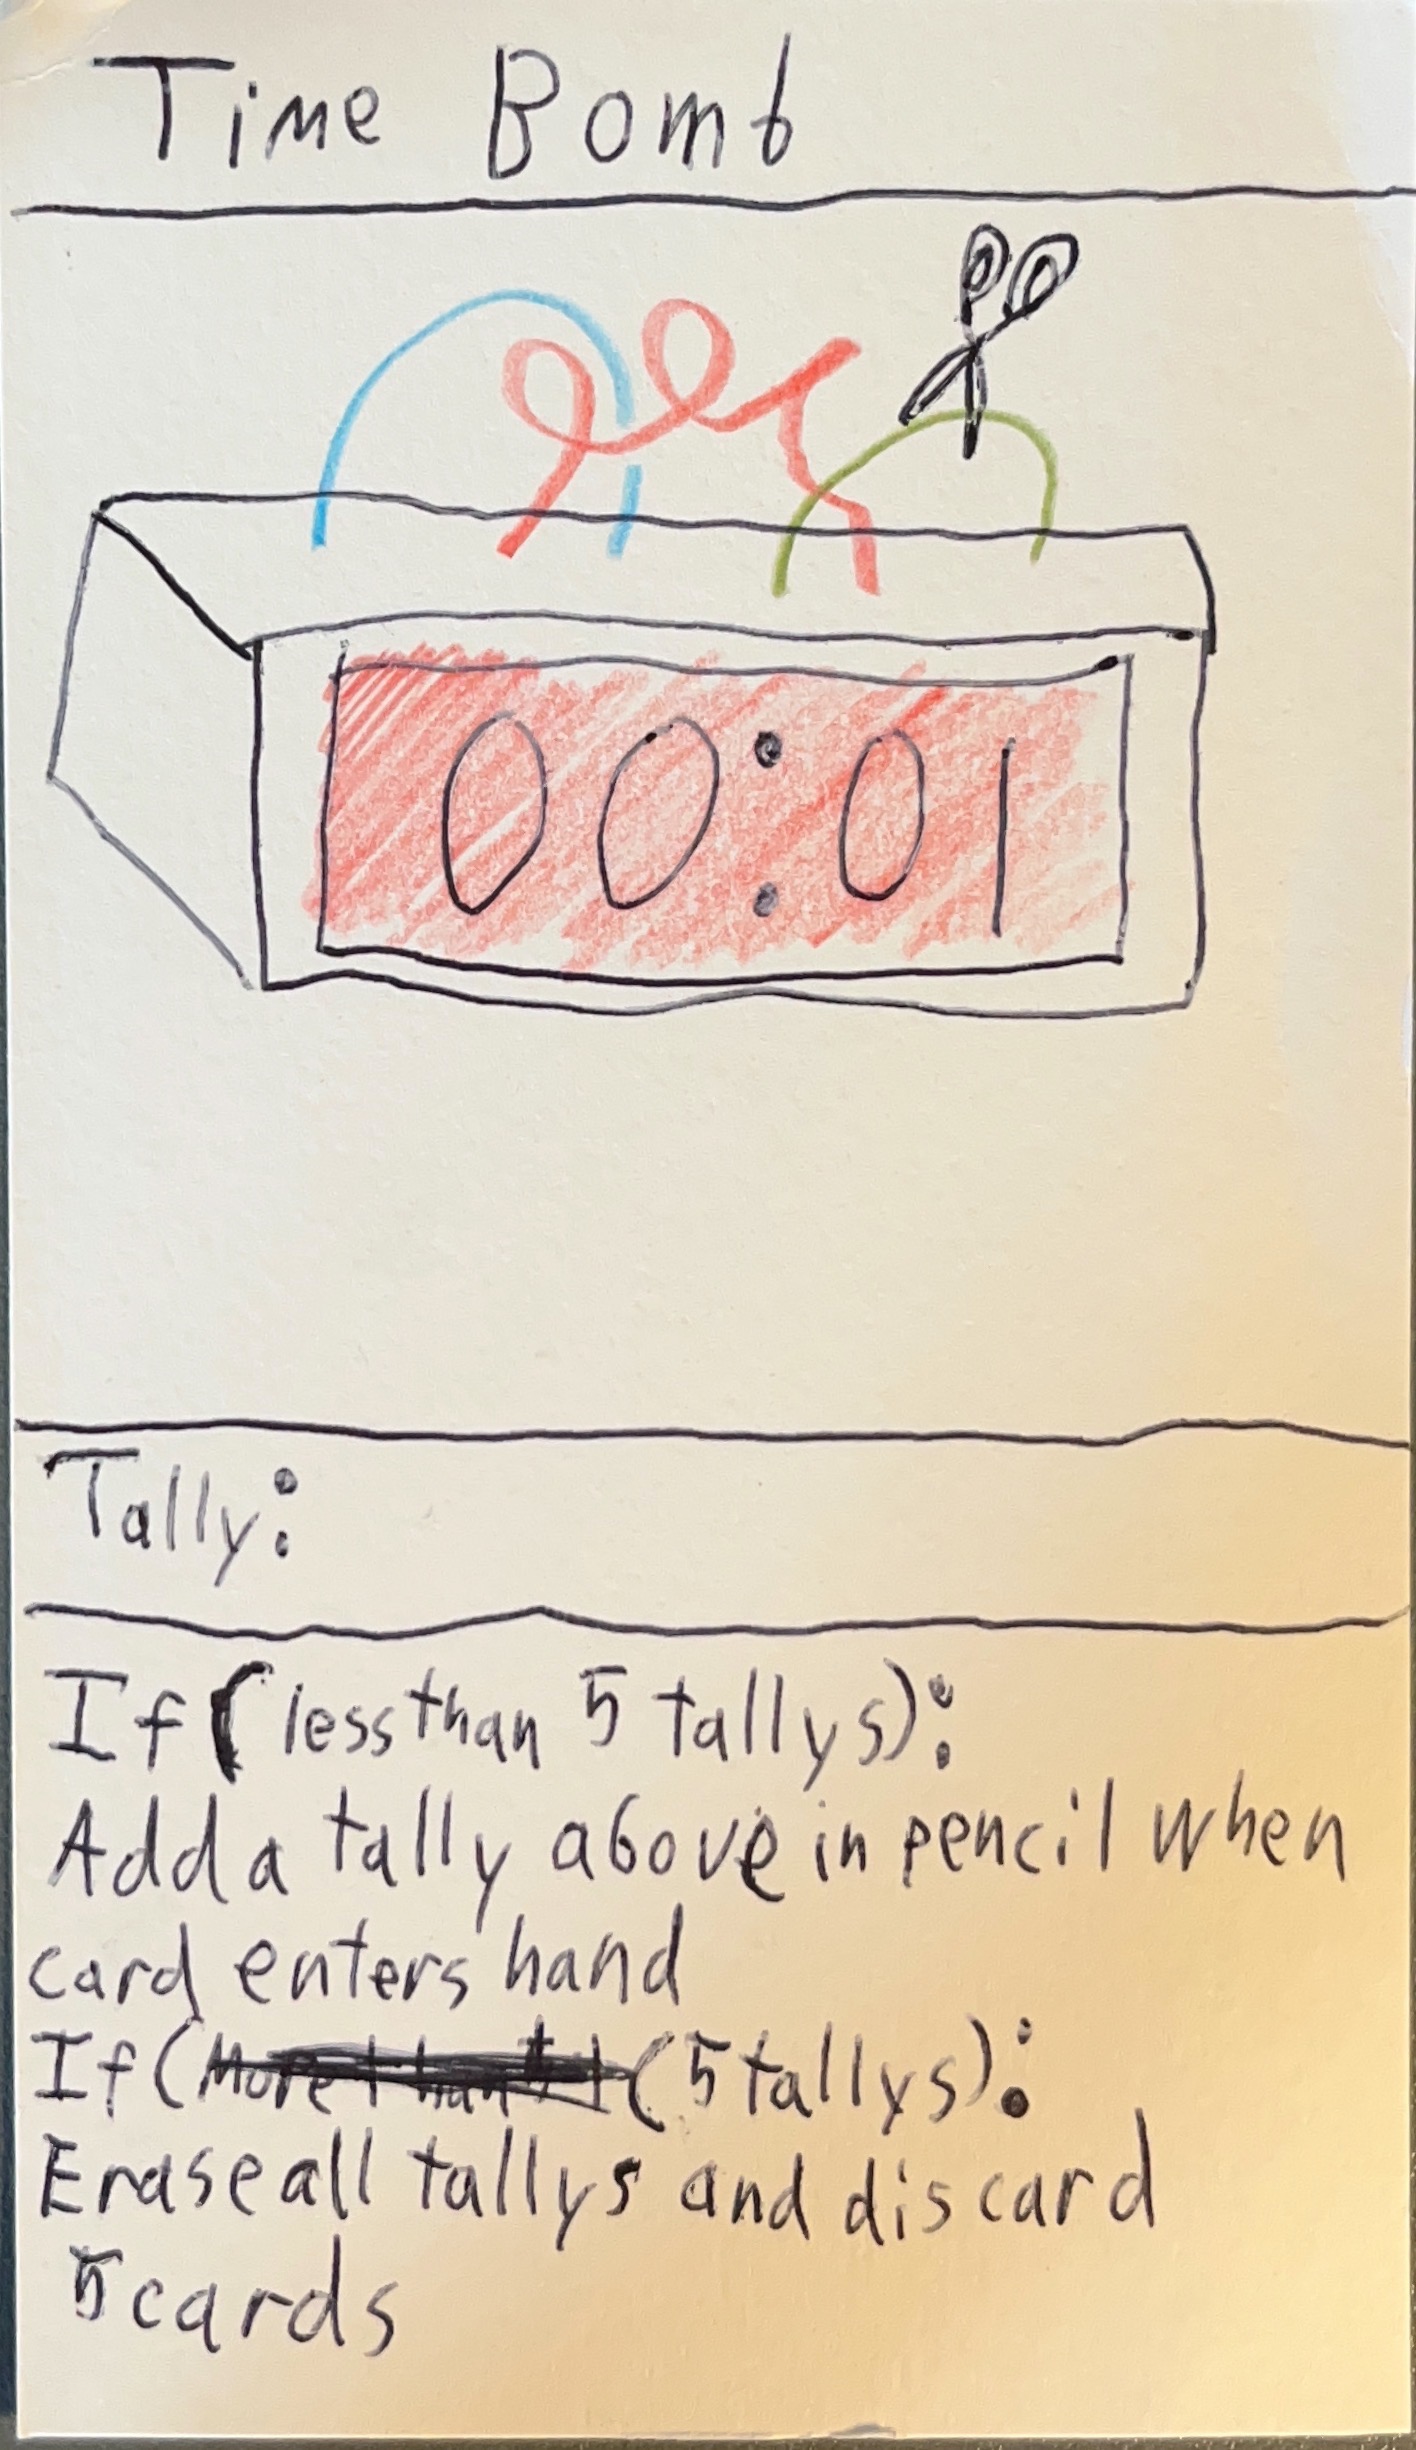 Time Bomb
00:01
Tally:
If (less than 5 tallys):
Add a tally above in pencil when
card enters hand
If ( (5 tallys):
Erase all tallys and discard
5 cards